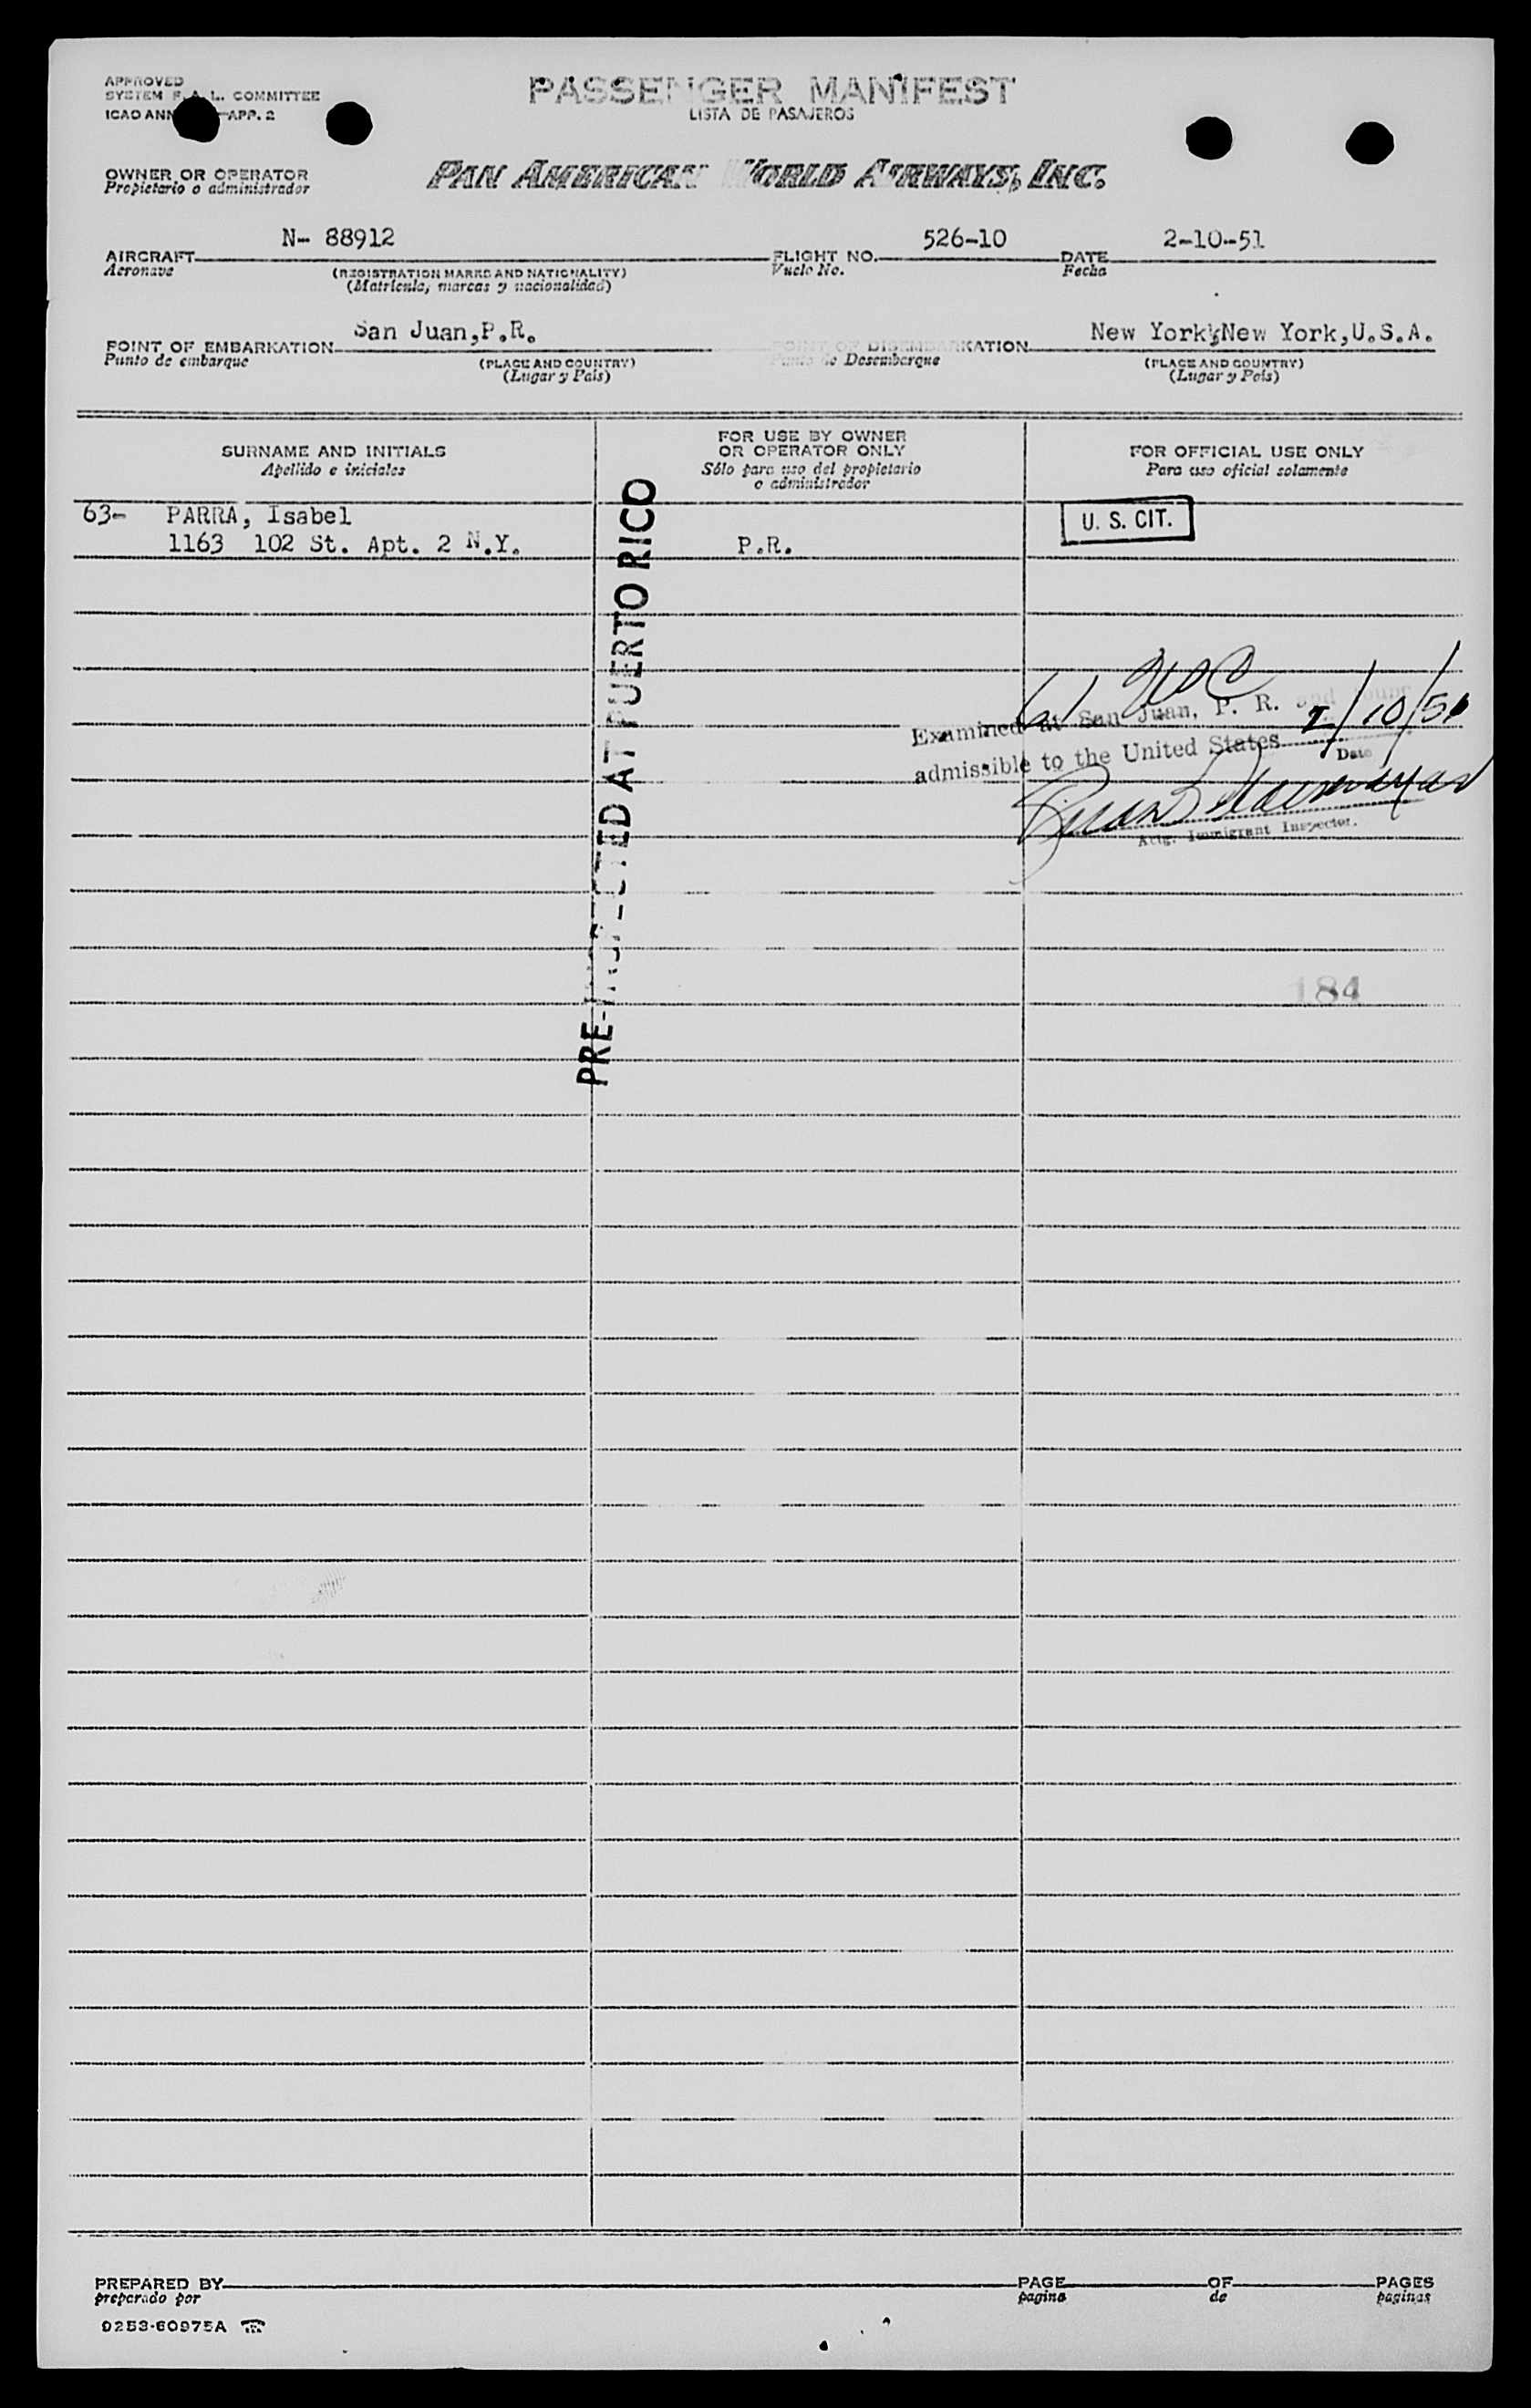 APPROVED
SYSTEM F.A.L. COMMITTEE
ICAO ANN APP. 2
PASSENGER MANIFEST
LISTA DE PASAJEROS
OWNER OR OPERATOR
Propietario o administrador
PAN AMERICAN WORLD AIRWAYS, INC.
AIRCRAFT N- 88912 FLIGHT NO. 526-10 DATE 2-10-51
Aeronave Vuelo No. Fecha
(REGISTRATION MARKS AND NATIONALITY)
(Matrícula, marcas y nacionalidad)
POINT OF EMBARKATION San Juan,P.R. POINT OF DISEMBARKATION New York,New York,U.S.A.
Punto de embarque (PLACE AND COUNTRY) Punto de Desembarque (PLACE AND COUNTRY)
(Lugar y País) (Lugar y País)
SURNAME AND INITIALS
Apellido e iniciales
FOR USE BY OWNER
OR OPERATOR ONLY
Sólo para uso del propietario
o administrador
FOR OFFICIAL USE ONLY
Para uso oficial solamente
63- PARRA, Isabel
1163 102 St. Apt. 2 N.Y. P.R.
U. S. CIT.
PRE-INSPECTED AT PUERTO RICO
Examined at San Juan, P. R. and found
admissible to the United States 2/10/51
Date
Actg. Immigrant Inspector.
184
PREPARED BY PAGE OF PAGES
preparado por pagina de paginas
0253-60975A